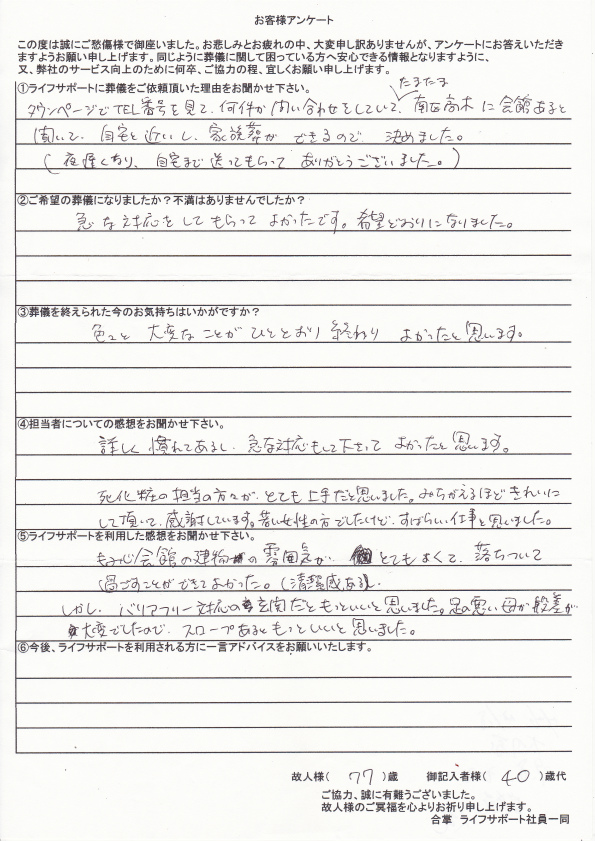 お客様アンケート
この度は誠にご愁傷様で御座いました。お悲しみとお疲れの中、大変申し訳ありませんが、アンケートにお答えいただき
ますようお願い申し上げます。同じように葬儀に関して困っている方へ安心できる情報となりますように、
又、弊社のサービス向上のために何卒、ご協力の程、宜しくお願い申し上げます。
①ライフサポートに葬儀をご依頼頂いた理由をお聞かせ下さい。
たまたま
タウンページでTEL番号を見て、何件か問い合わせをしていて、南区高木に会館あると
聞いて、自宅と近いし、家族葬ができるので 決めました。
(夜遅くなり、自宅まで送ってもらって ありがとうございました。)
②ご希望の葬儀になりましたか?不満はありませんでしたか?
急な対応をしてもらって よかったです。希望どおりになりました。
③葬儀を終えられた今のお気持ちはいかがですか?
色々と 大変なことが ひととおり 終わり よかったと思います。
④担当者についての感想をお聞かせ下さい。
詳しく 慣れてあるし、急な対応もして下さって よかったと思います。
死化粧の担当の方々が、とても上手だと思いました。みちがえるほどきれいに
して頂いて、感謝しています。若い女性の方でしたけど、すばらしい仕事と思いました。
⑤ライフサポートを利用した感想をお聞かせ下さい。
会館の建物の雰囲気が、とてもよくて、落ちついて
過ごすことができてよかった。(清潔感ある)
しかし、バリアフリー対応の玄関だともっといいと思いました。足の悪い母が段差が
大変でしたので、スロープあるともっといいと思いました。
⑥今後、ライフサポートを利用される方に一言アドバイスをお願いいたします。
故人様( 77 )歳 御記入者様( 40 )歳代
ご協力、誠に有難うございました。
故人様のご冥福を心よりお祈り申し上げます。
合掌 ライフサポート社員一同